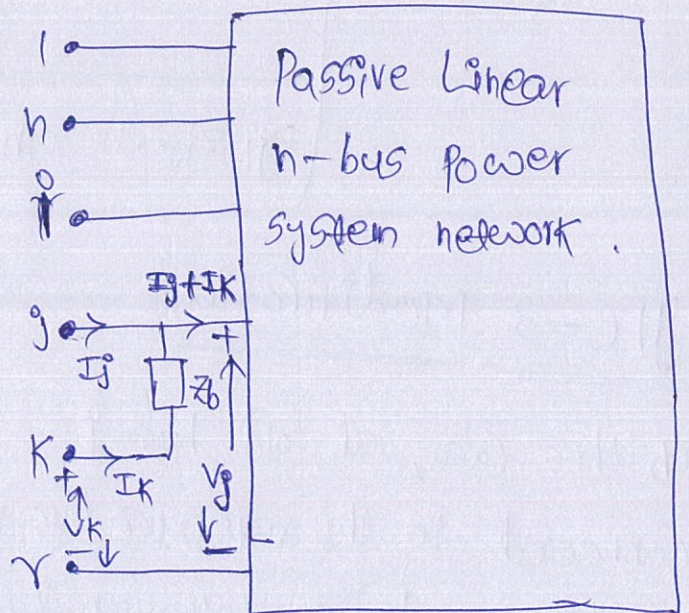 1
Passive Linear
n
n-bus power
i
system network.
Ij+Ik
j
+
Ij
Zb
K
+
IK
Vj
Vk
-
-
r